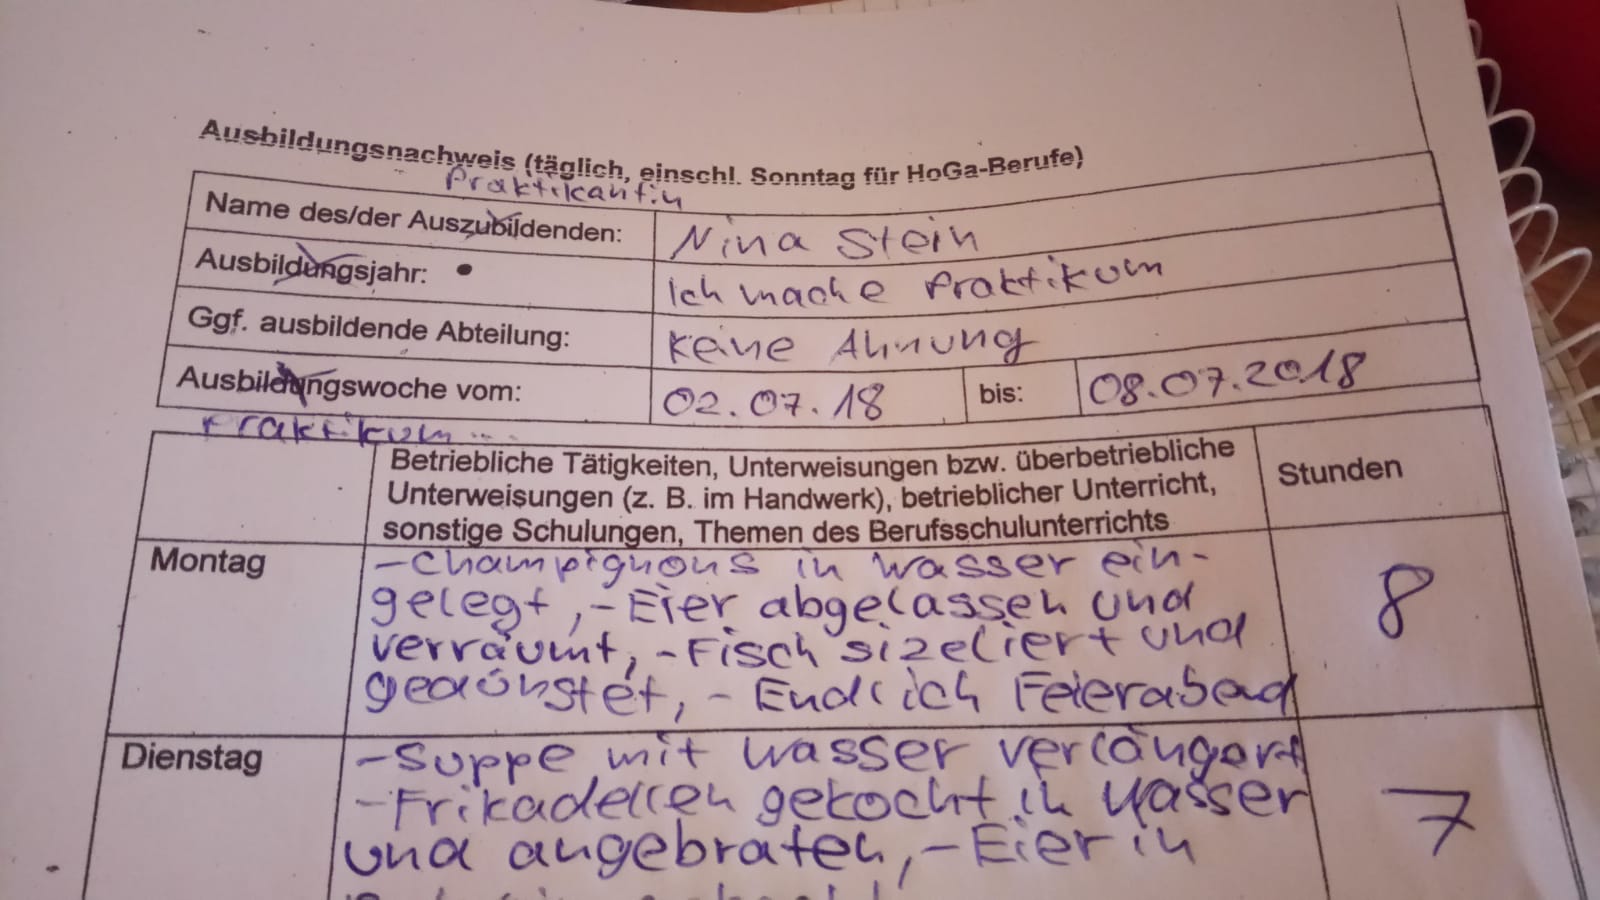 Ausbildungsnachweis (täglich, einschl. Sonntag für HoGa-Berufe)
Praktikantin
Name des/der Auszubildenden: Nina Stein
Ausbildungsjahr: Ich mache Praktikum
Ggf. ausbildende Abteilung: Keine Ahnung
Ausbildungswoche vom: 02.07.18 bis: 08.07.2018
Praktikum...
Betriebliche Tätigkeiten, Unterweisungen bzw. überbetriebliche
Unterweisungen (z. B. im Handwerk), betrieblicher Unterricht,
sonstige Schulungen, Themen des Berufsschulunterrichts
Stunden
Montag
- Champignons in Wasser ein-
gelegt, - Eier abgelassen und
verräumt, - Fisch sizeliert und
gedünstet, - Endlich Feierabend
8
Dienstag
- Suppe mit Wasser verlängert
- Frikadellen gekocht in Wasser
und angebraten, - Eier in
7